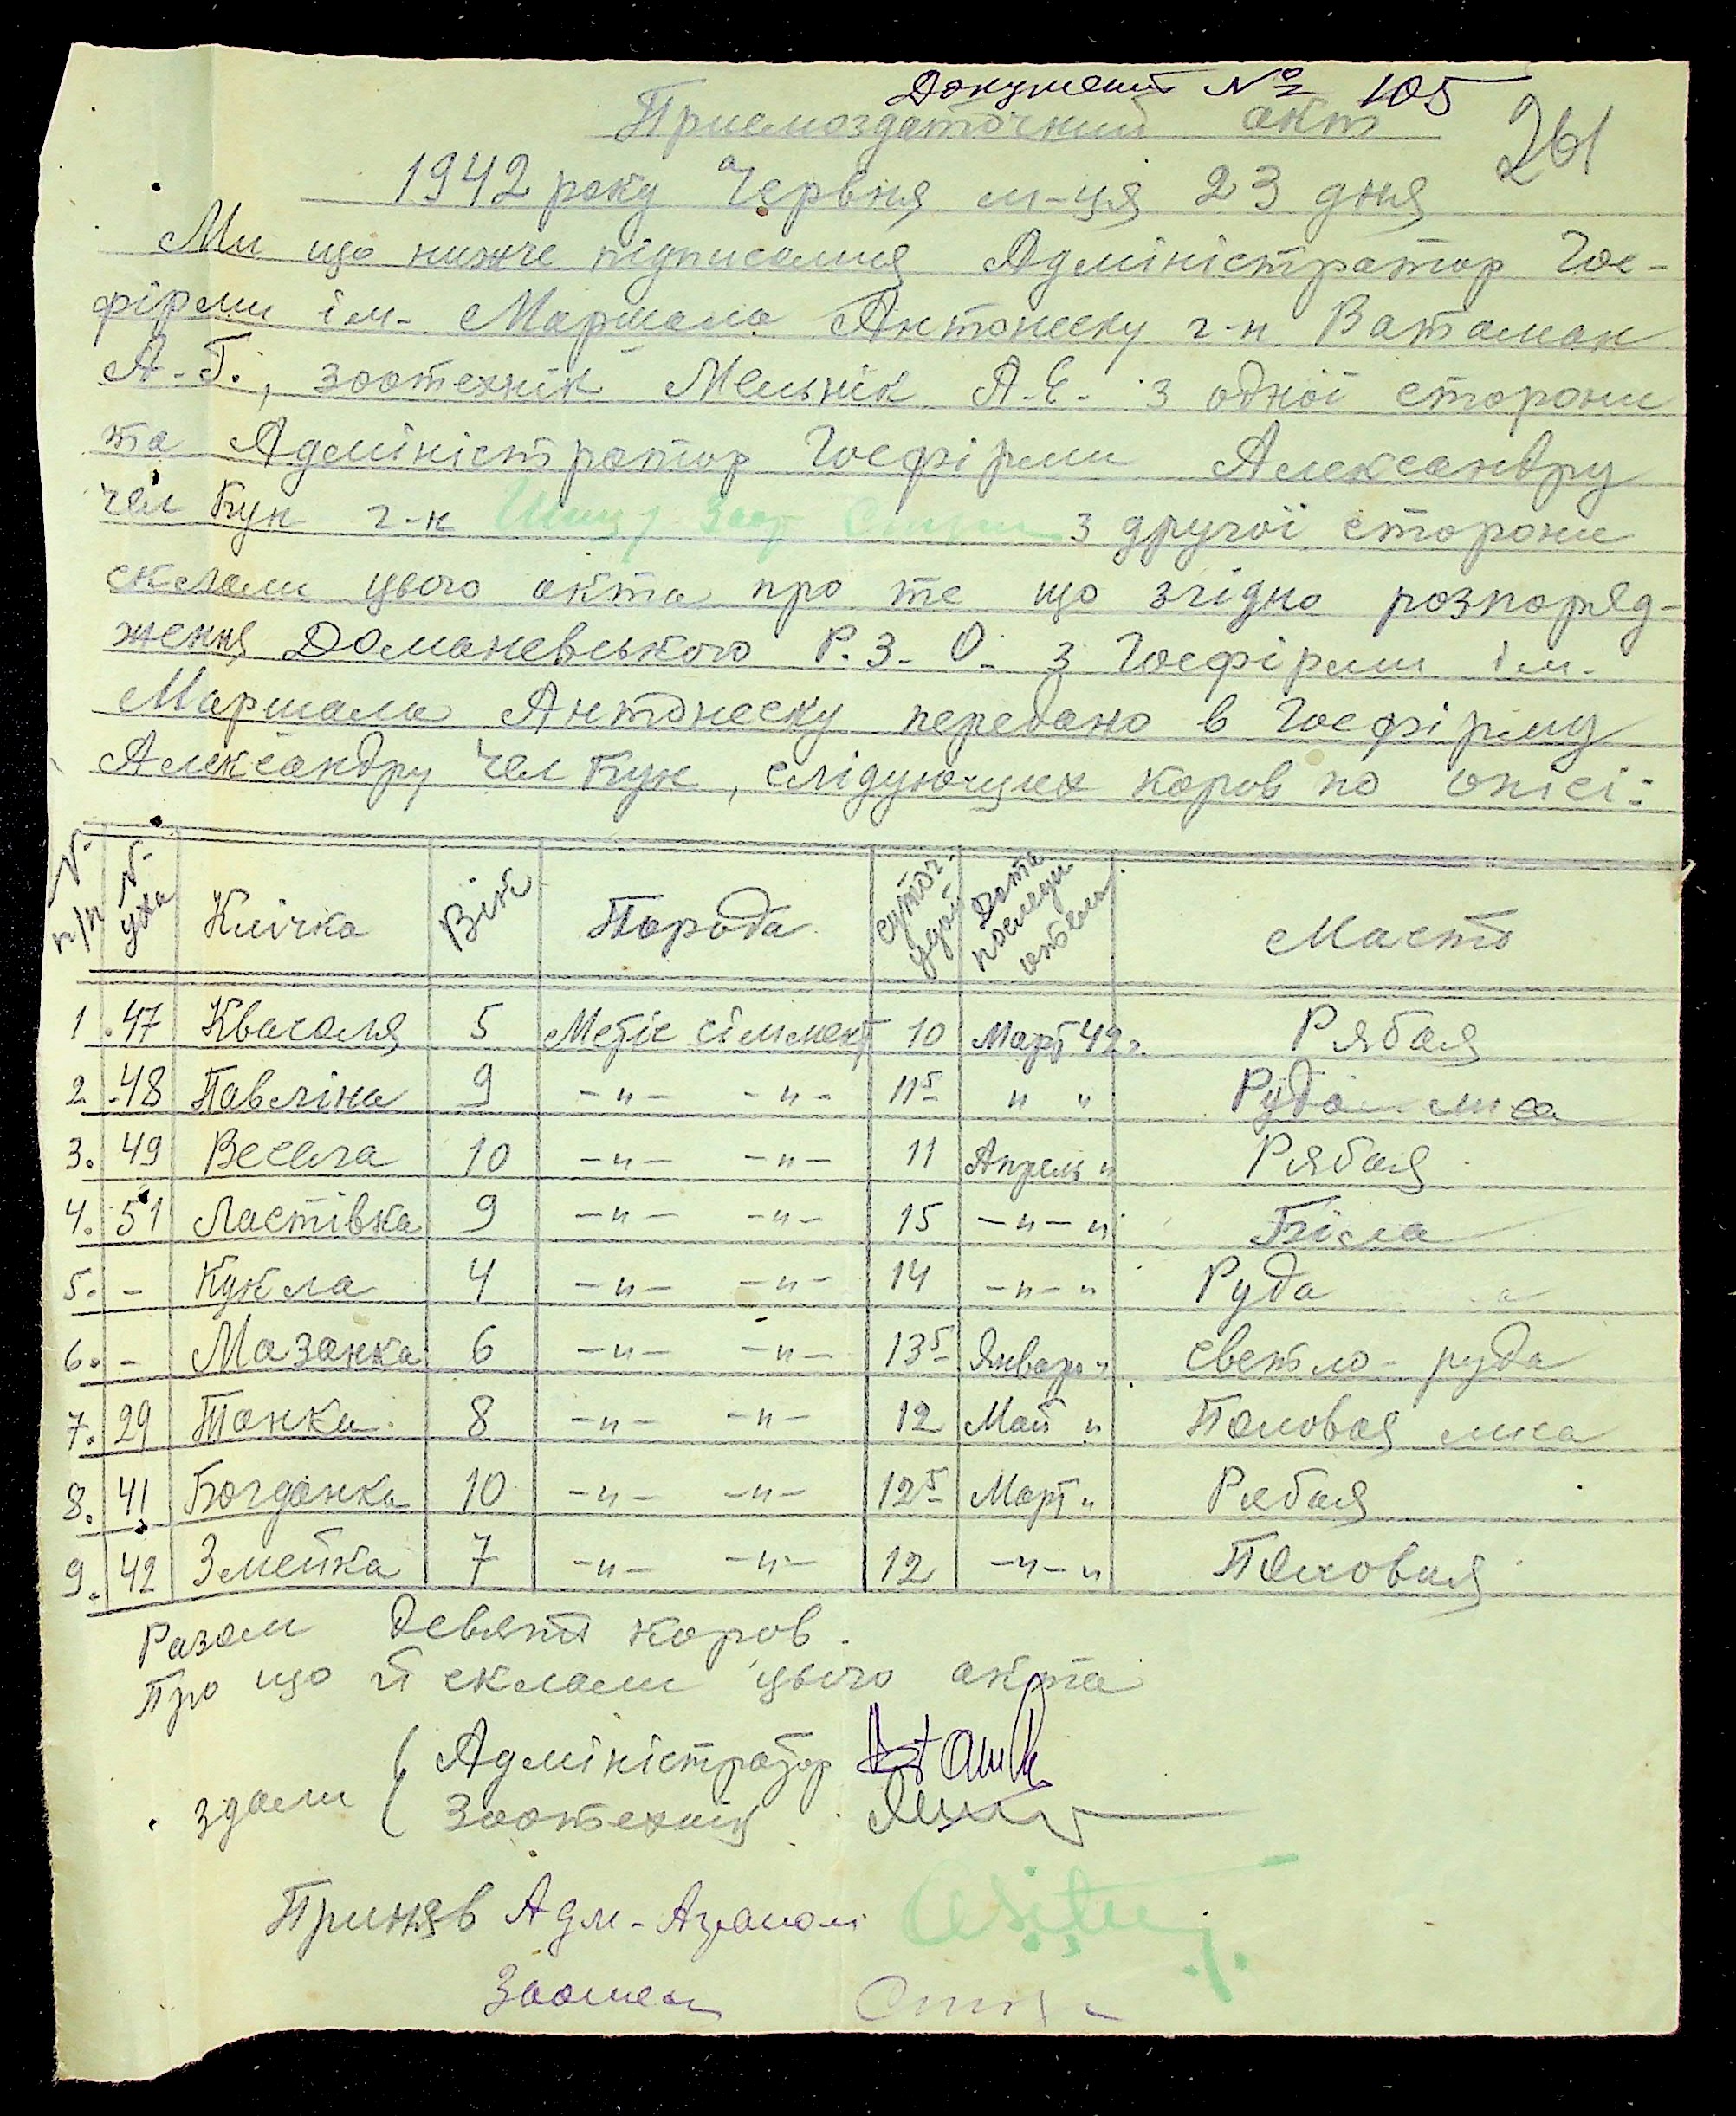 Документ № 105
Приемоздаточний акт
261
1942 року Червня м-ця 23 дня
Ми що нижче підписались Адміністратор Гос-
фірми ім. Маршала Антонеску г-н Ватаман
А.Г., зоотехнік Мельнік А.Е. з одної сторони
та Адміністратор Госфірми Александру
чел Бун г-н з другої сторони
склали цього акта про те що згідно розпоряд-
ження Доманевського Р.З.О. з Госфірми ім.
Маршала Антонеску передано в Госфірму
Александру чел Бун, слідующих коров по опісі:
№ п/п № уха Клічка Вік Порода суточ. удой Дата последн отела Масть
1 47 Квасоля 5 Метіс сіммент 10 Март 42г. Рябая
2 48 Павліна 9 -"- -"- 11⁵ " " Руда лиса
3. 49 Весела 10 -"- -"- 11 Апрель " Рябая
4. 51 Ластівка 9 -"- -"- 15 -"- " Біла
5. - Кукла 4 -"- -"- 14 -"- " Руда
6. - Мазанка 6 -"- -"- 13⁵ Январь " светло-руда
7. 29 Танка 8 -"- -"- 12 Май " Половая лиса
8. 41 Богданка 10 -"- -"- 12⁵ Март " Рябая
9. 42 Змейка 7 -"- -"- 12 -"- " Половая
Разом девять коров.
Про що й склали цього акта
здали ( Адміністратор
Зоотехнік
Приняв Адм-Агроном
Зоотех